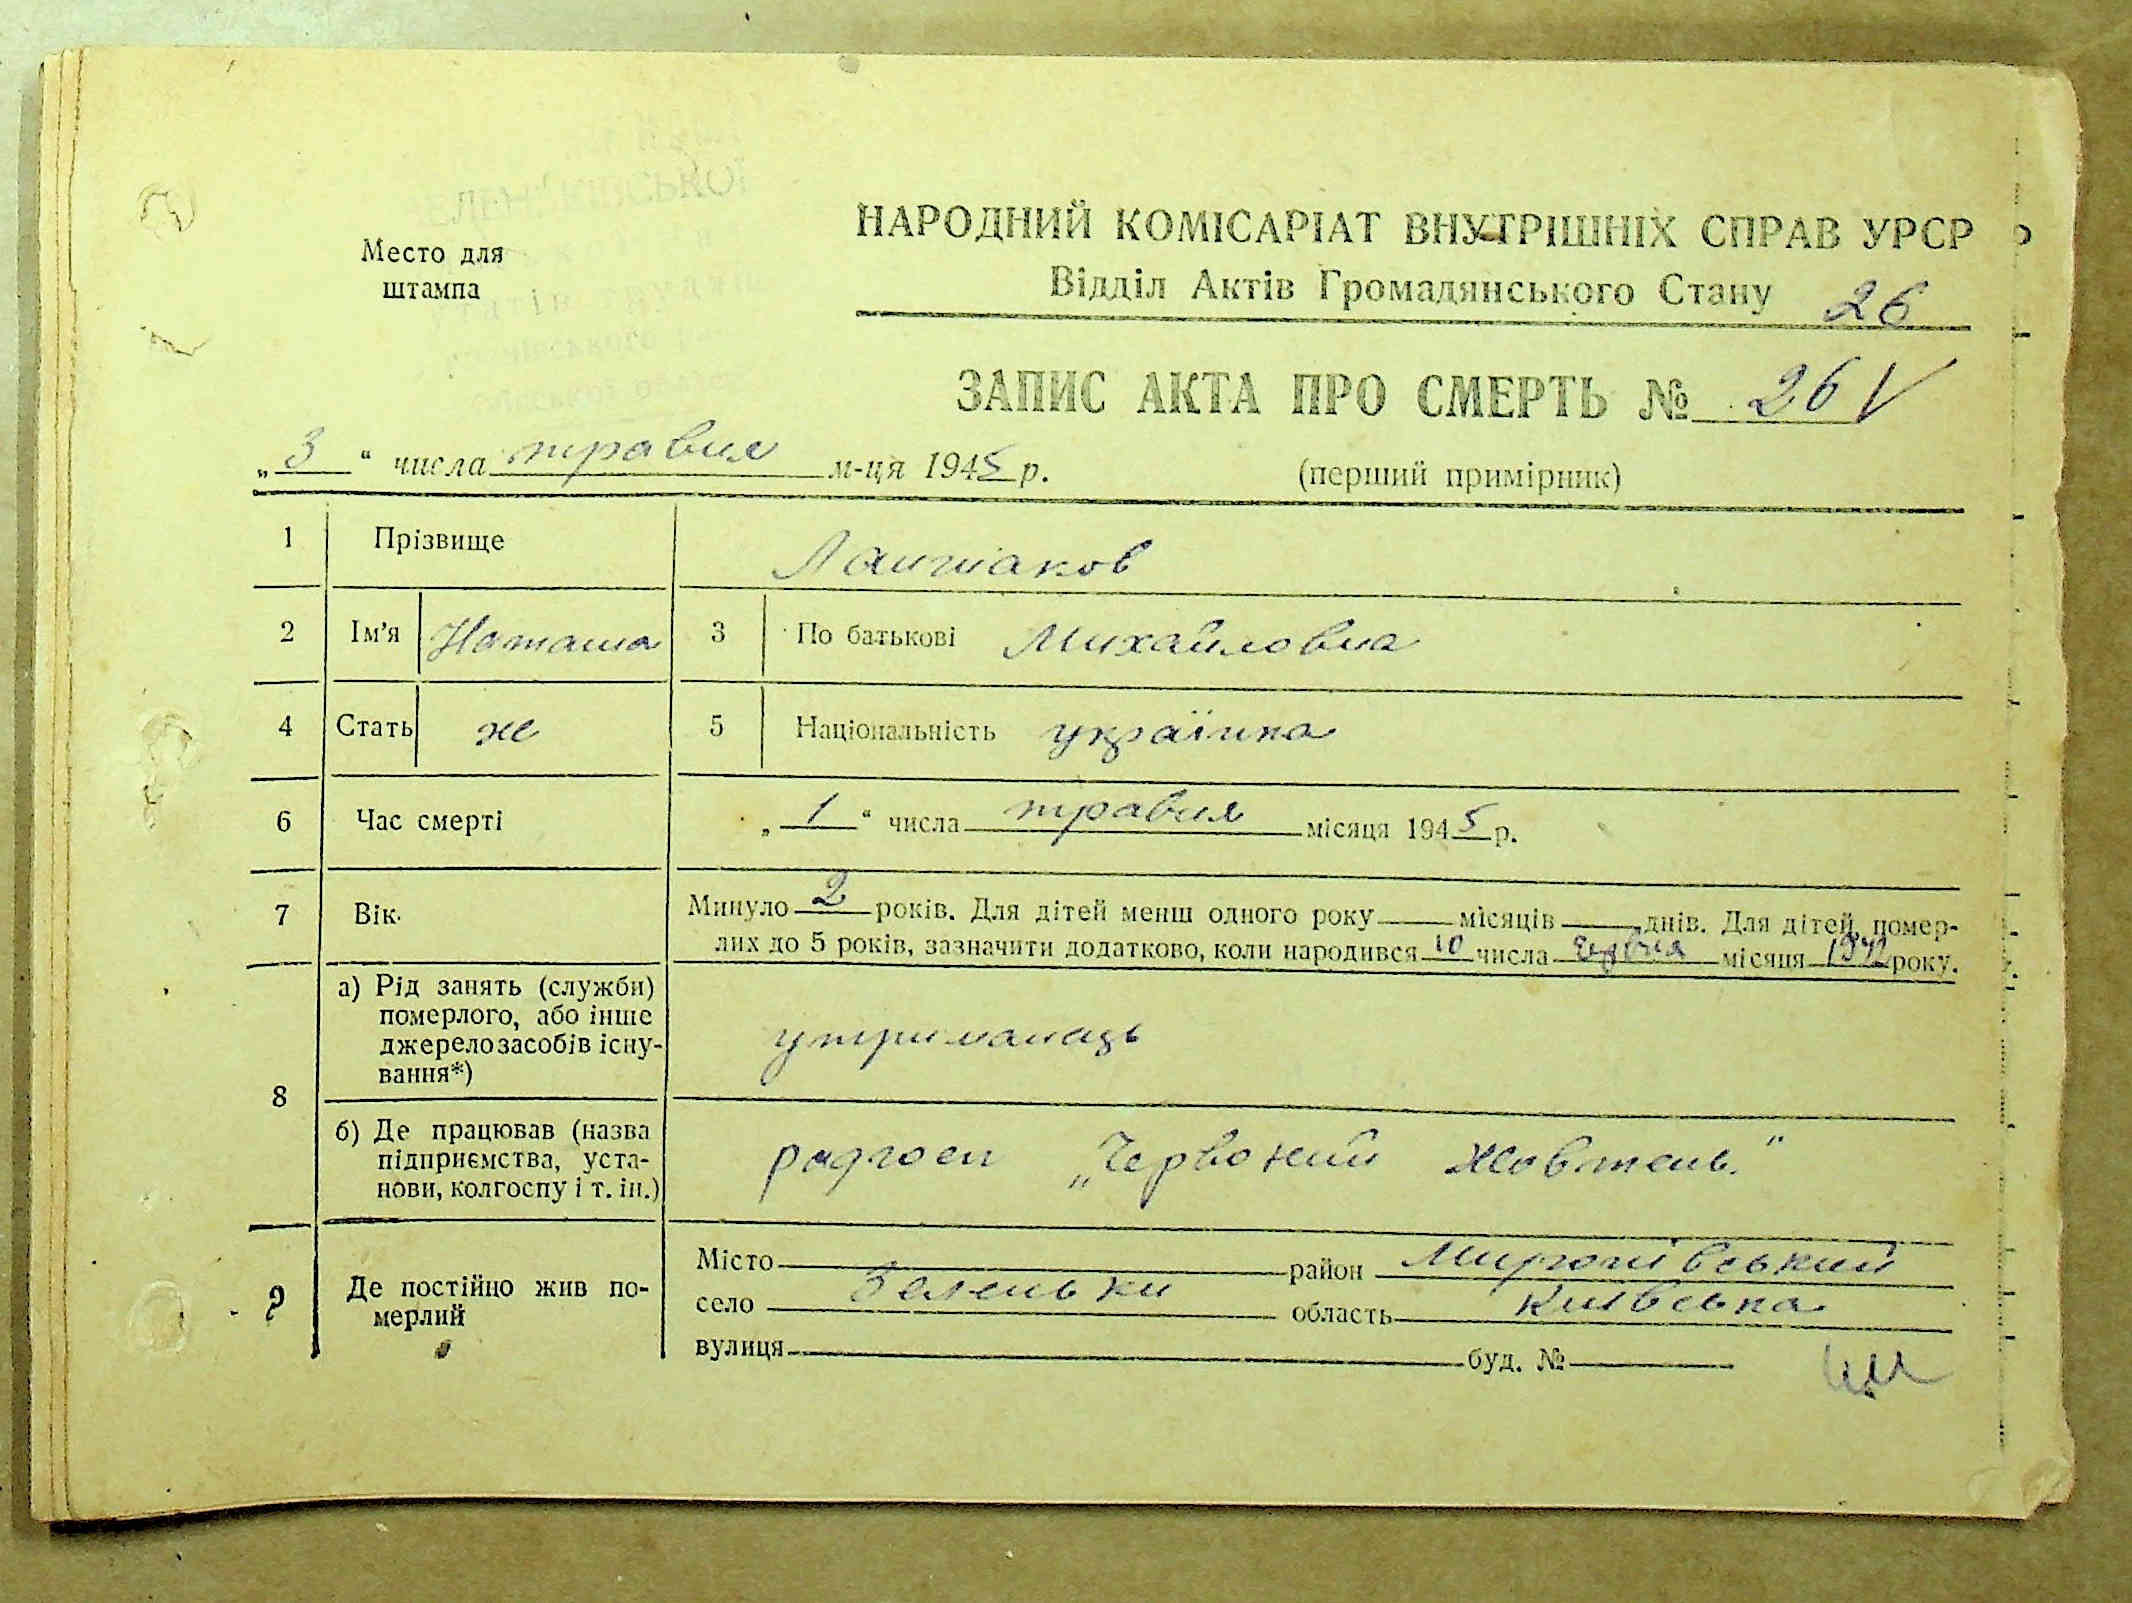 Место для
штампа
НАРОДНИЙ КОМІСАРІАТ ВНУТРІШНІХ СПРАВ УРСР
Відділ Актів Громадянського Стану 26
ЗАПИС АКТА ПРО СМЕРТЬ № 26 V
„3“ числа травня м-ця 1945 р. (перший примірник)
1 Прізвище
2 Ім'я Наташа 3 По батькові Михайловна
4 Стать ж 5 Національність українка
6 Час смерті „1“ числа травня місяця 1945 р.
7 Вік Минуло 2 років. Для дітей менш одного року місяців днів. Для дітей, помер-
лих до 5 років, зазначити додатково, коли народився 10 числа місяця 1942 року.
8 а) Рід занять (служби)
померлого, або інше
джерело засобів існу-
вання*)
утриманець
б) Де працював (назва
підприємства, уста-
нови, колгоспу і т. ін.)
радгосп „Червоний Жовтень."
9 Де постійно жив по-
мерлий
Місто район Миронівський
село Зеленьки область Київська
вулиця буд. №